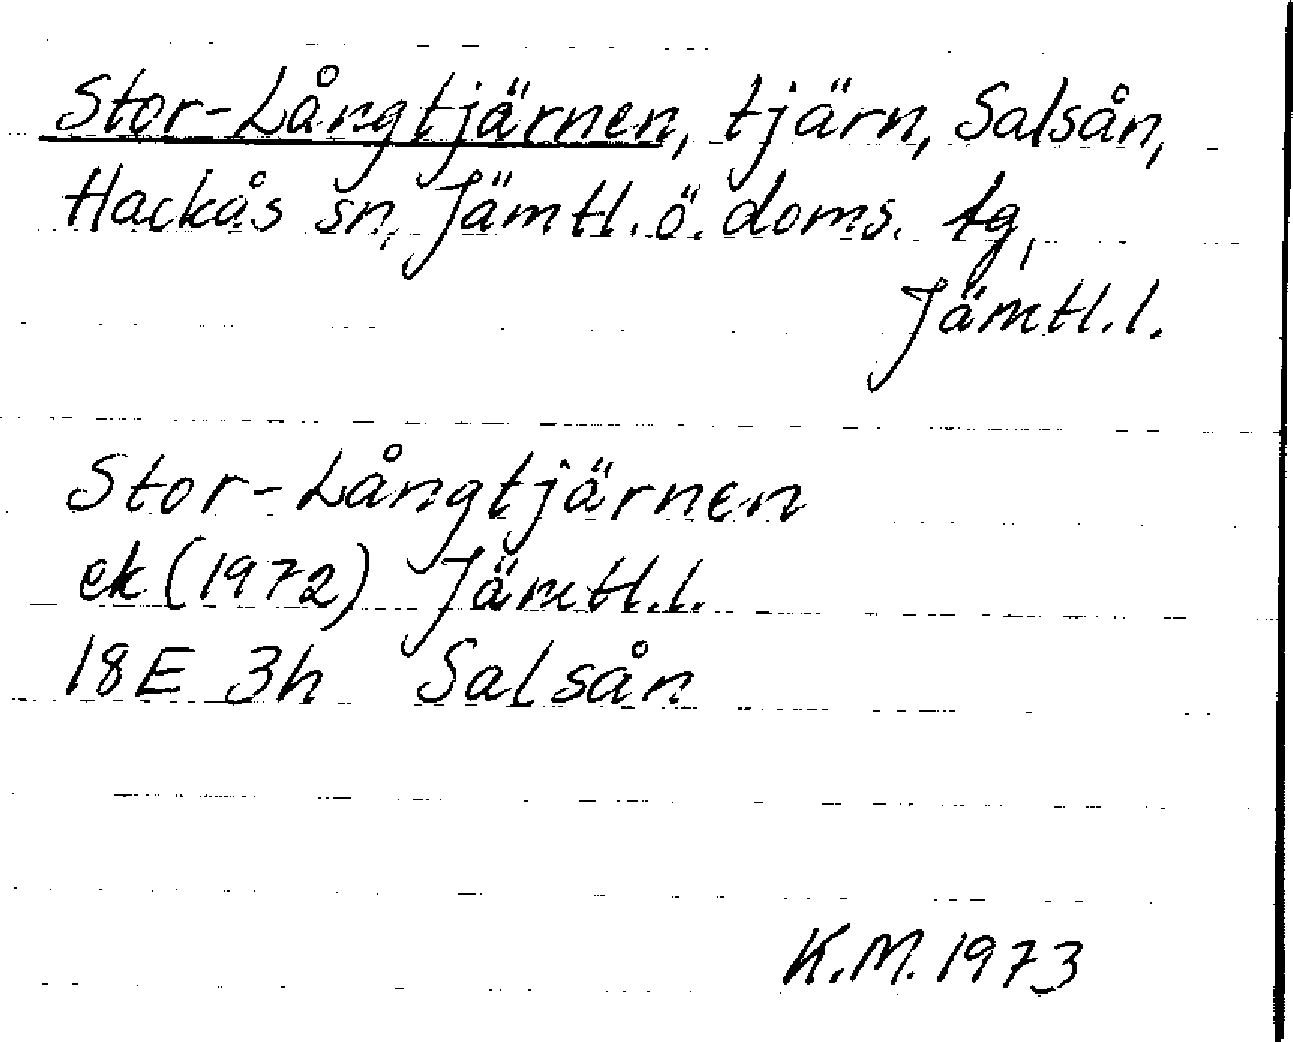 Stor-Långtjärnen, tjärn, Salsån,
Hackås sn, Jämtl. ö. doms. tg,
Jämtl. l.
Stor-Långtjärnen
ek (1972) Jämtl. l.
18E 3h Salsån
K.M. 1973